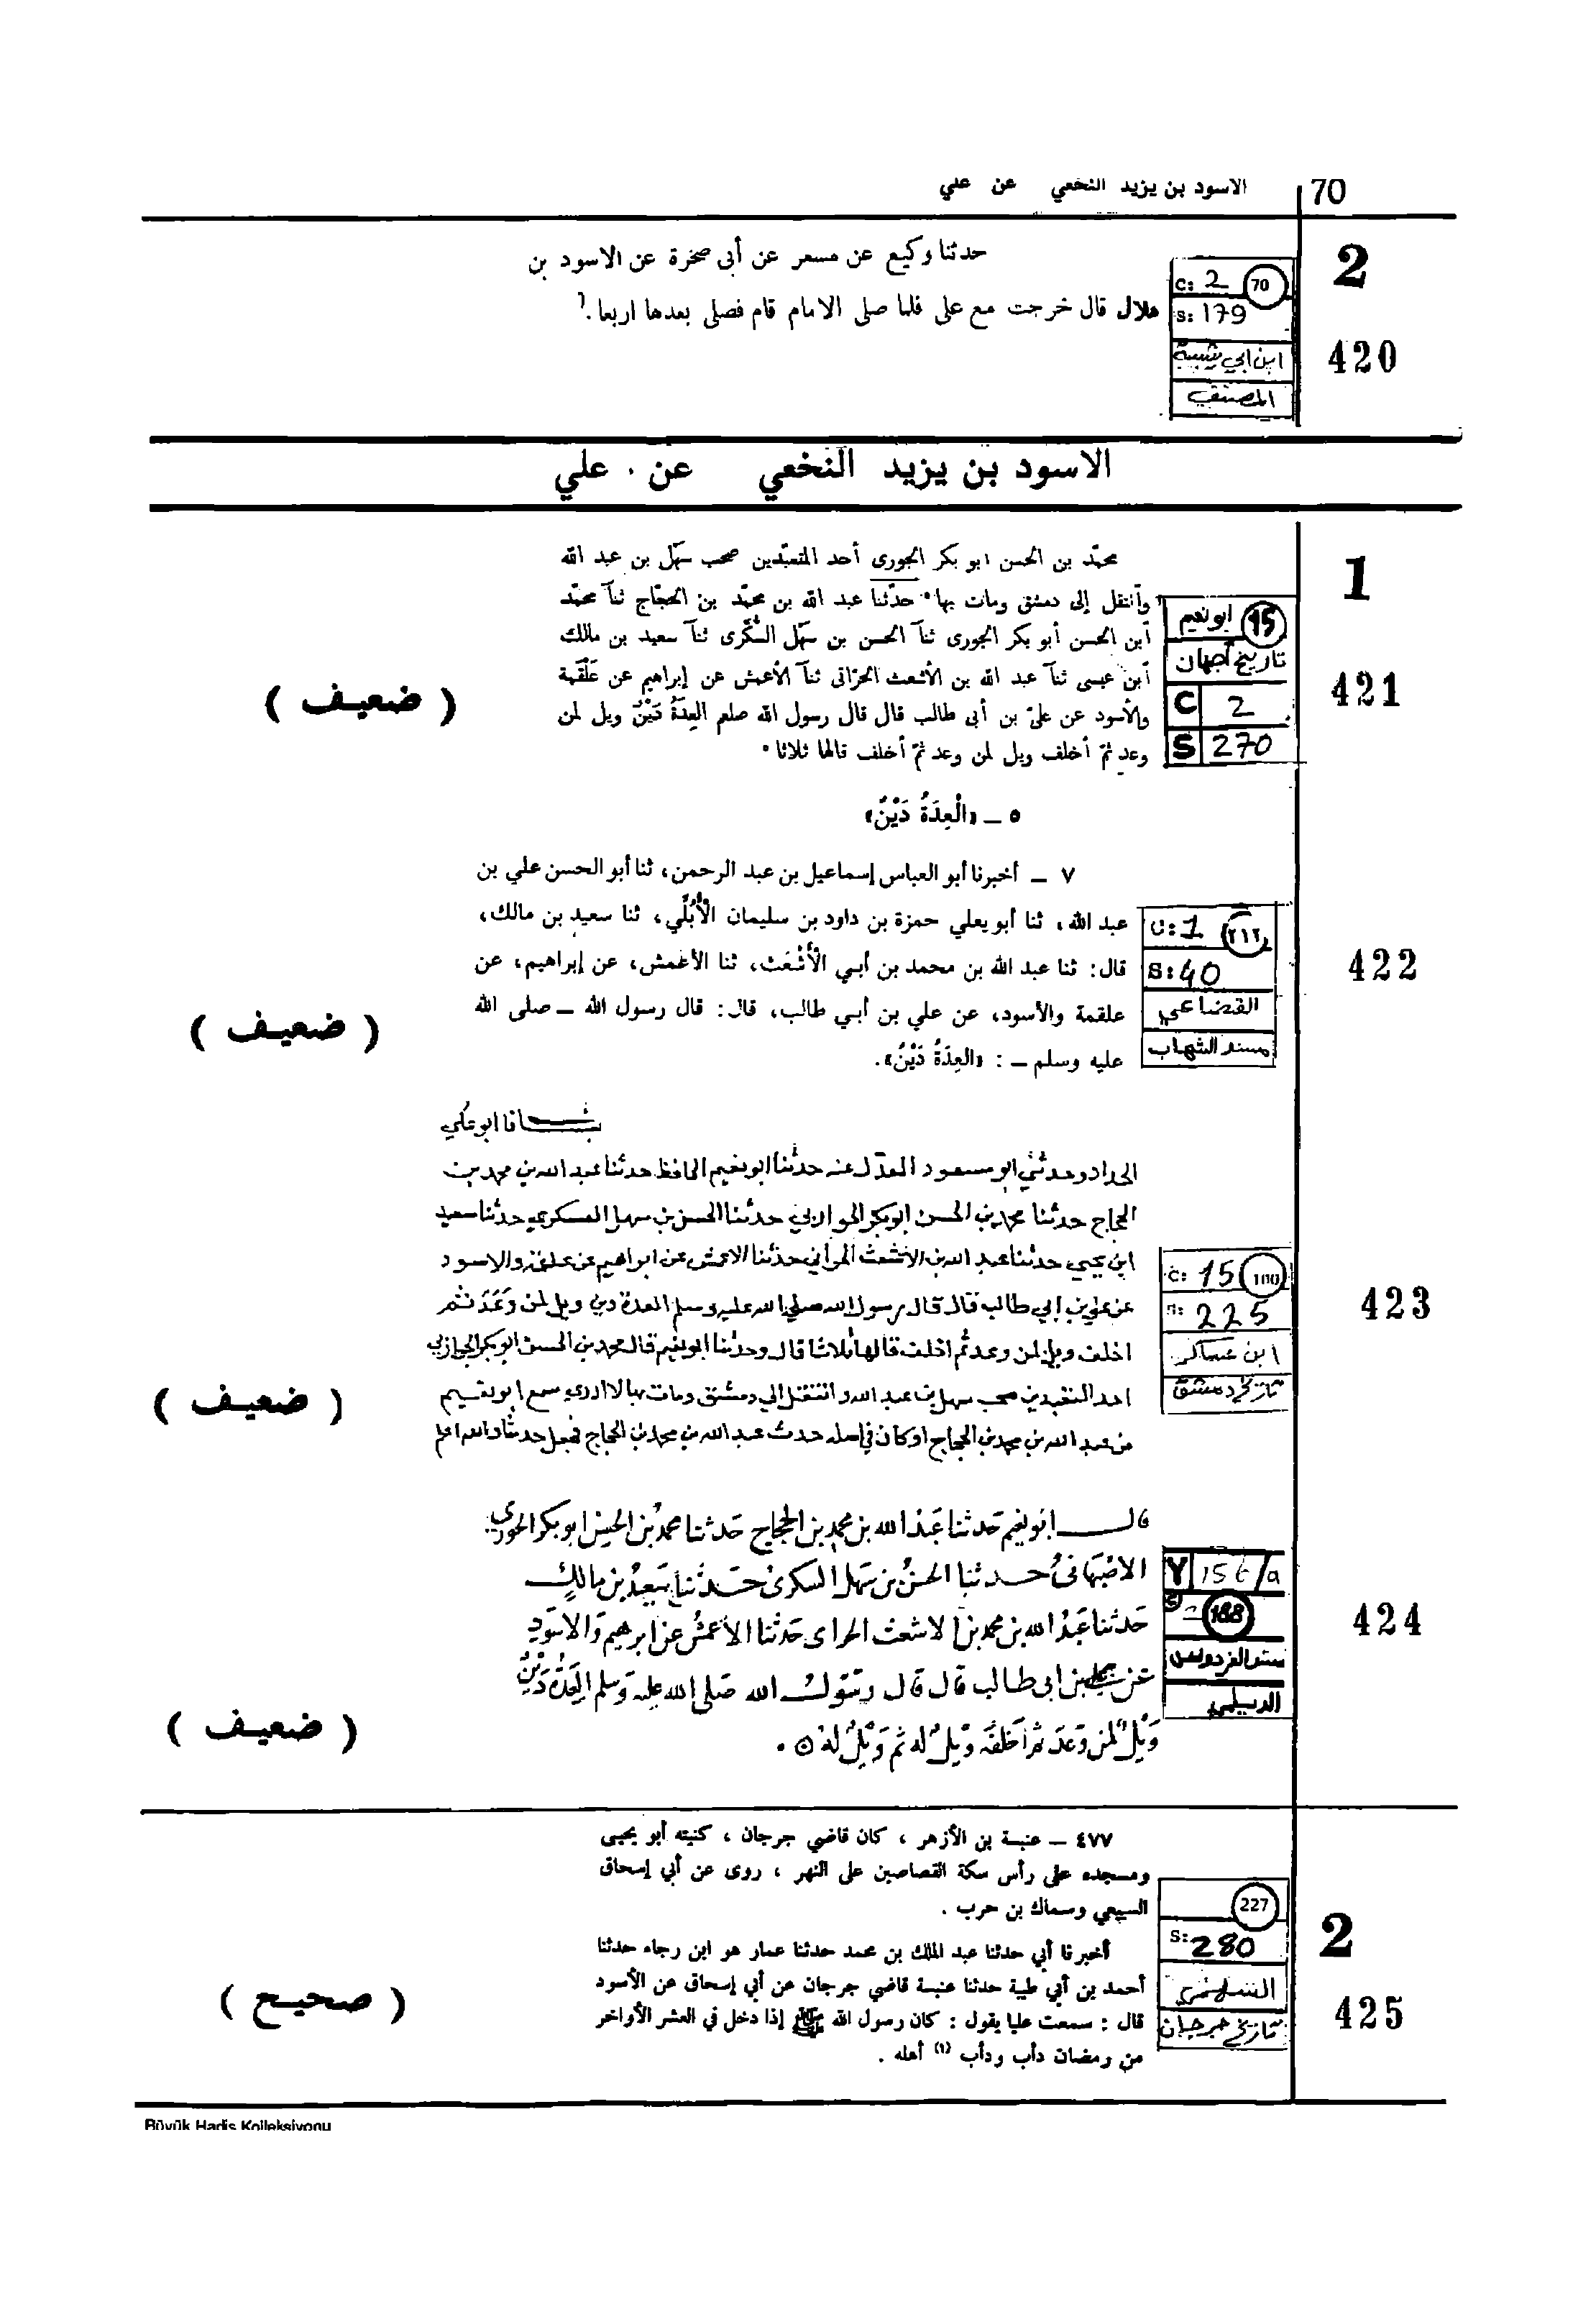 الاسود بن يزيد النخعي عن علي 70
2
حدثنا وكيع عن مسعر عن أبى صخرة عن الاسود بن
هلال قال خرجت مع على فلما صلى الامام قام فصلى بعدها اربعا.
C: 2 70
S: 179
ابن ابي شيبة
المصنف
420
الاسود بن يزيد النخعي عن علي
1
محمّد بن الحسن ابو بكر الجورى أحد المتعبّدين صحب سهل بن عبد الله
وأنتقل إلى دمشق ومات بها، حدّثنا عبد الله بن محمّد بن الحجّاج ثنا محمّد
ابن الحسن أبو بكر الجورى ثنا الحسن بن سهل السُّكّرى ثنا سعيد بن مالك
أبن عيسى ثنا عبد الله بن الأشعث الحرّانى ثنا الأعمش عن إبراهيم عن علقمة
والأسود عن علىّ بن أبى طالب قال قال رسول الله صلعم العِدَةُ دَيْنٌ ويل لمن
وعد ثمّ أخلف ويل لمن وعد ثمّ أخلف قالها ثلاثا،
15 ابو نعيم
تاريخ أصبهان
C 2
S 270
421
( ضعيف )
٥ ــ «الْعِدَةُ دَيْنٌ»
٧ ــ أخبرنا أبو العباس إسماعيل بن عبد الرحمن، ثنا أبو الحسن علي بن
عبد الله، ثنا أبو يعلي حمزة بن داود بن سليمان الأُبُلِّي، ثنا سعيد بن مالك،
قال: ثنا عبد الله بن محمد بن أبي الأَشْعَث، ثنا الأعمش، عن إبراهيم، عن
علقمة والأسود، عن علي بن أبي طالب، قال: قال رسول الله ــ صلى الله
عليه وسلم ــ : «العِدَةُ دَيْنٌ».
C: 1 ٢١٢
S: 40
القضاعي
مسند الشهاب
422
( ضعيف )
انا ابو علي
الحداد وحدثني ابو مسعود المعدل عنه حدثنا ابو نعيم الحافظ حدثنا عبد الله بن محمد بن
الحجاج حدثنا محمد بن الحسن ابو بكر حدثنا الحسن بن سهل العسكري حدثنا سعيد
ابن يحيى حدثنا عبد الله بن الاشعث الحراني حدثنا الاعمش عن ابراهيم عن علقمة والاسود
عن علي بن ابي طالب قال قال رسول الله صلى الله عليه وسلم العدة دين ويل لمن وعد ثم
اخلف ويل لمن وعد ثم اخلف قالها ثلاثا قال وحدثنا ابو نعيم قال محمد بن الحسن ابو بكر
احد المتعبدين صحب سهل بن عبد الله وانتقل الي دمشق ومات بها لا ادري سمع ابو نعيم
من عبد الله بن محمد بن الحجاج او كان في اصله حدث عبد الله بن محمد بن الحجاج فجعل حدثنا والله اعلم
C: 15 100
S: 225
ابن عساكر
تاريخ دمشق
423
( ضعيف )
قال ابو نعيم حدثنا عبد الله بن محمد بن الحجاج حدثنا محمد بن الحسن ابو بكر الجوري
الاصبهاني حدثنا الحسن بن سهل السكرى حدثنا سعيد بن مالك
حدثنا عبد الله بن محمد بن الاشعث الحراى حدثنا الأعمش عن ابرهيم والاسود
عن علي بن ابى طالب قال قال رسول الله صلى الله عليه وسلم العِدَةُ دَيْنٌ
ويل لمن وعد ثم أخلفه ويل له ثم ويل له .
Y 156/a
188
مسند الفردوس
الديلمي
424
( ضعيف )
٤٧٧ ــ عنبسة بن الأزهر ، كان قاضي جرجان ، كنيته أبو يحيى
ومسجده على رأس سكة القصاصين على النهر ، روى عن أبي إسحاق
السبيعي وسماك بن حرب .
أخبرنا أبي حدثنا عبد الملك بن محمد حدثنا عمار هو ابن رجاء حدثنا
أحمد بن أبي طيبة حدثنا عنبسة قاضي جرجان عن أبي إسحاق عن الأسود
قال : سمعت عليا يقول : كان رسول الله ﷺ إذا دخل في العشر الأواخر
من رمضان دأب ودأب (١) أهله .
227
S: 280
السهمي
تاريخ جرجان
2
425
( صحيح )
Büyük Hadis Kolleksiyonu